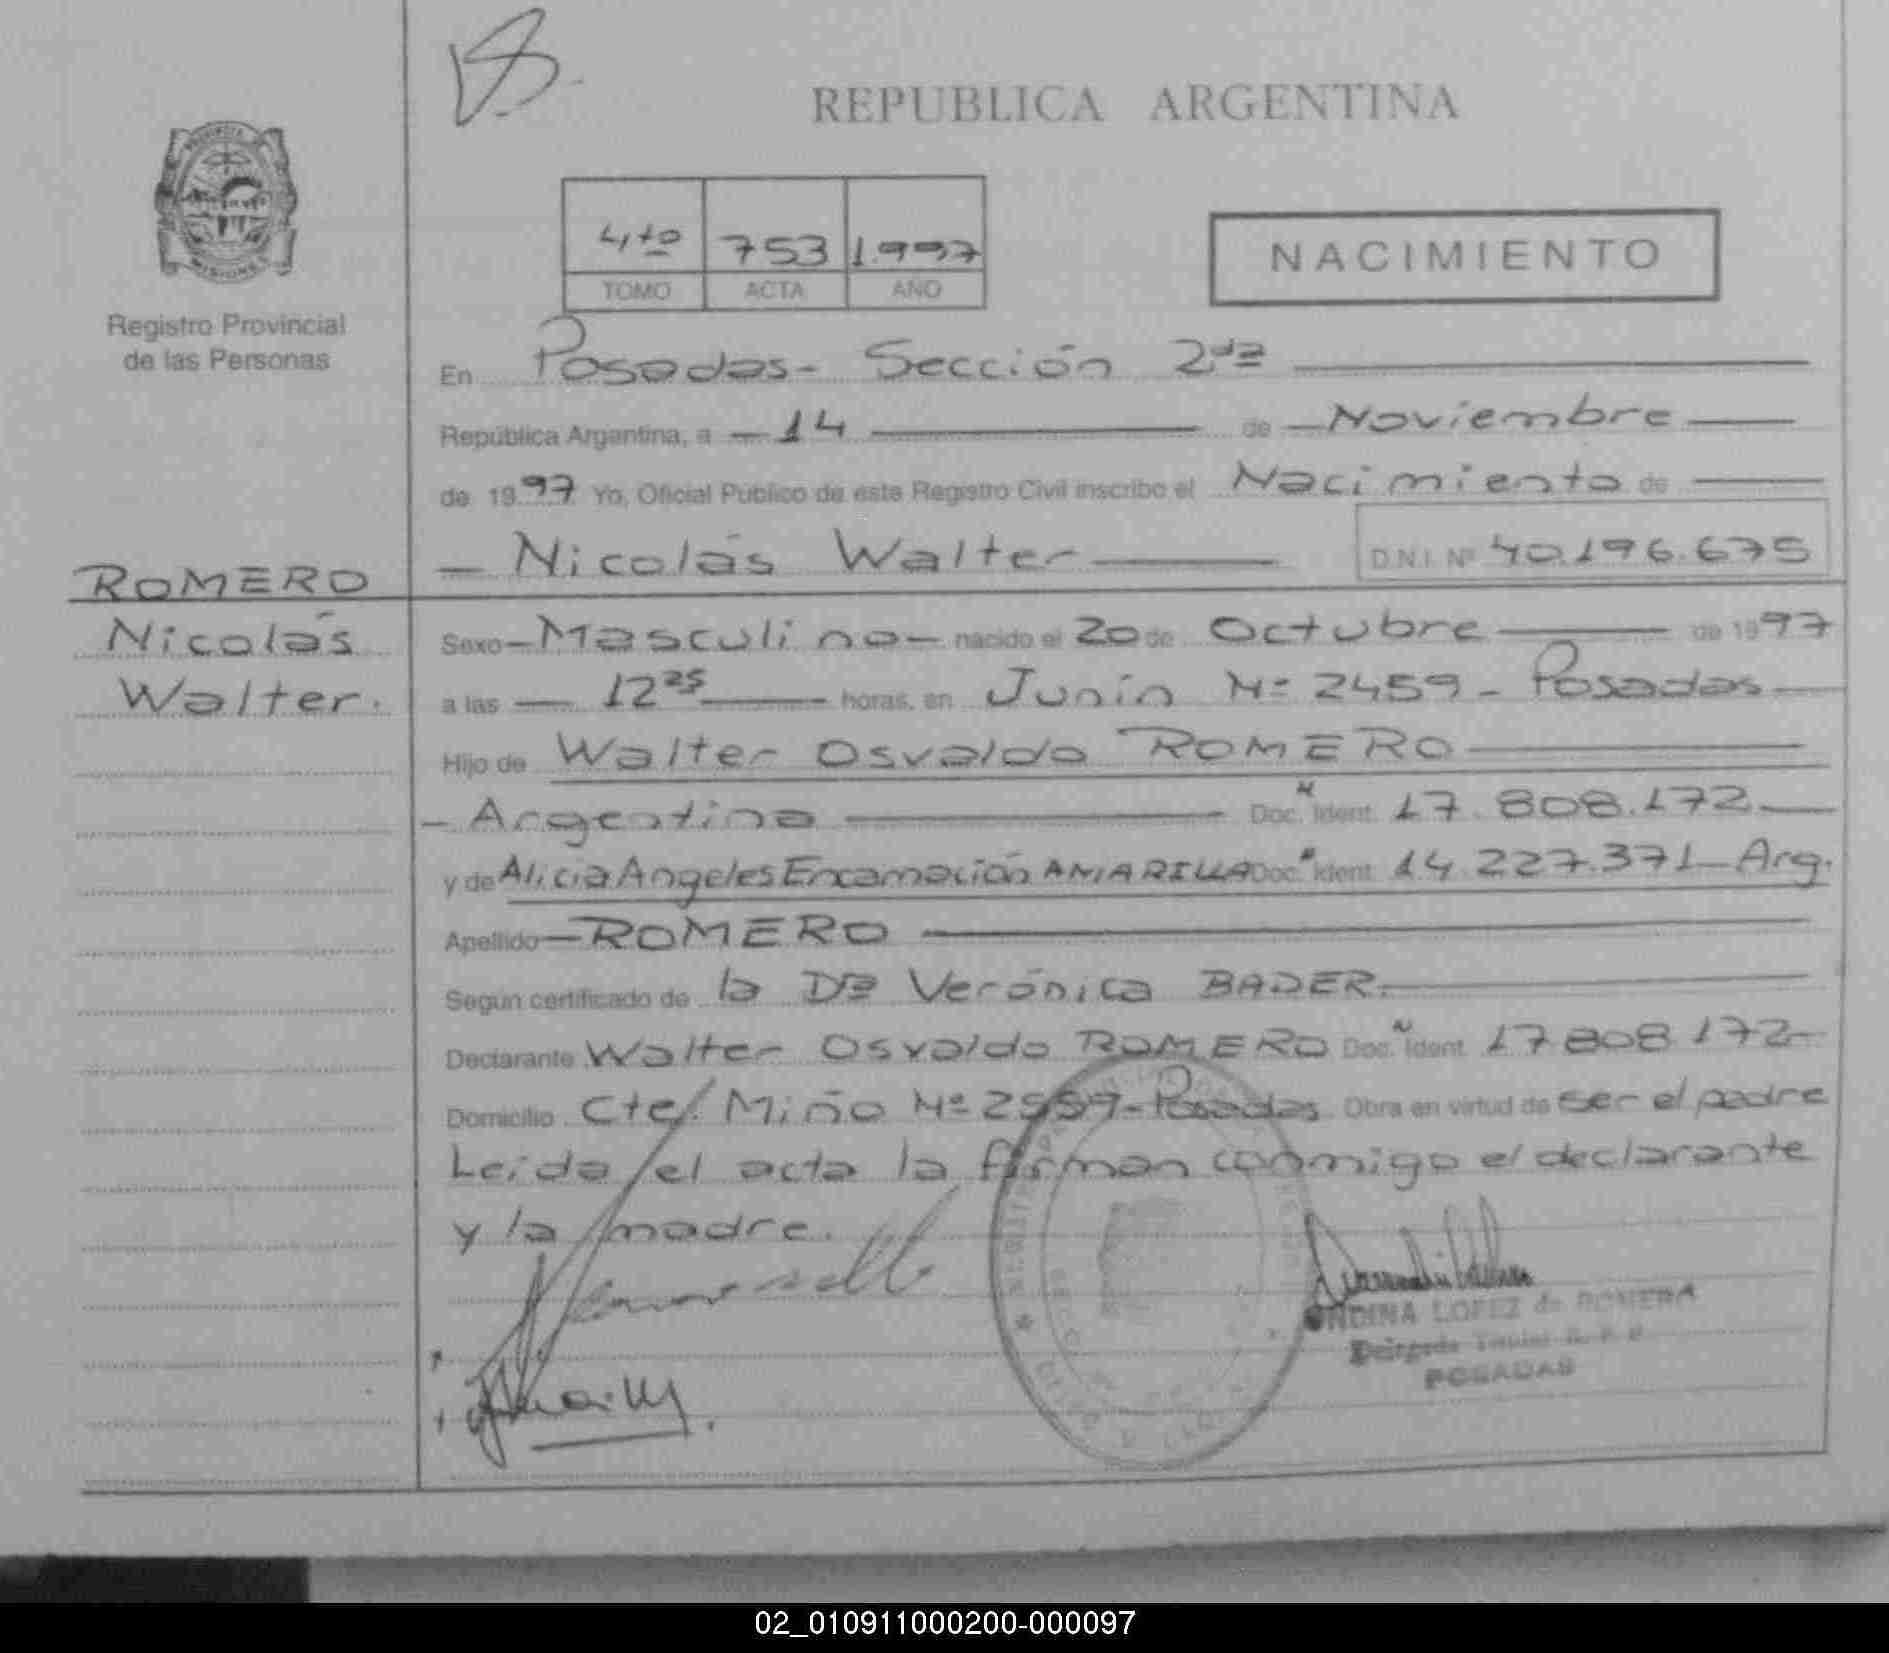 REPUBLICA ARGENTINA
PROVINCIA
MISIONES
Registro Provincial
de las Personas
4to 753 1.997
TOMO ACTA AÑO
NACIMIENTO
En Posadas- Sección 2da
República Argentina, a - 14 de - Noviembre
de 1997 Yo, Oficial Público de este Registro Civil inscribo el Nacimiento de
- Nicolás Walter D.N.I. Nº 40.196.675
ROMERO
Nicolás
Walter.
Sexo - Masculino - nacido el 20 de Octubre de 1997
a las 12 25 horas, en Junín Nº 2459 - Posadas
Hijo de Walter Osvaldo ROMERO
- Argentina Doc. Ident. 17.808.172
y de Alicia Angeles Encarnación AMARILLA Doc. Ident. 14.227.371 - Arg.
Apellido - ROMERO
Según certificado de la Dra Verónica BADER.
Declarante Walter Osvaldo ROMERO Doc. Ident. 17.808.172-
Domicilio Cte. Miño Nº - Posadas Obra en virtud de ser el padre
Leída el acta la firman conmigo el declarante
y la madre.
ONDINA LOPEZ de ROMERA
Delegada Titular R. P. P.
POSADAS
02_010911000200-000097